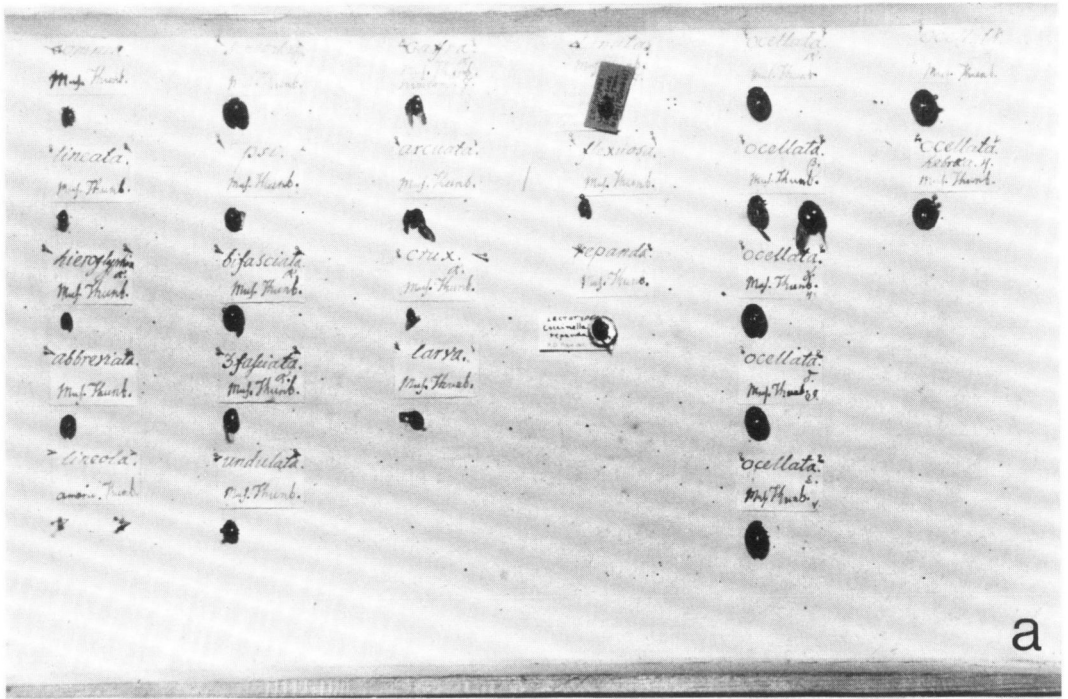 Mus. Thunb.
lineata.
Mus. Thunb.
hieroglyphica
α.
Mus. Thunb.
abbreviata.
Mus. Thunb.
lineola.
Thunb.
psi.
Mus. Thunb.
bifasciata
Mus. Thunb.
3fasciata.
Mus. Thunb.
undulata.
Mus. Thunb.
caffra.
arcuata.
Mus. Thunb.
crux.
α.
Mus. Thunb.
larva.
Mus. Thunb.
flexuosa.
Mus. Thunb.
repanda.
Mus. Thunb.
LECTOTYPE
Coccinella
repanda
ocellata
Mus. Thunb.
ocellata.
β.
Mus. Thunb.
ocellata.
Mus. Thunb.
ocellata.
Mus. Thunb.
ocellata.
ε.
Mus. Thunb.
Mus. Thunb.
ocellata.
Mus. Thunb.
a